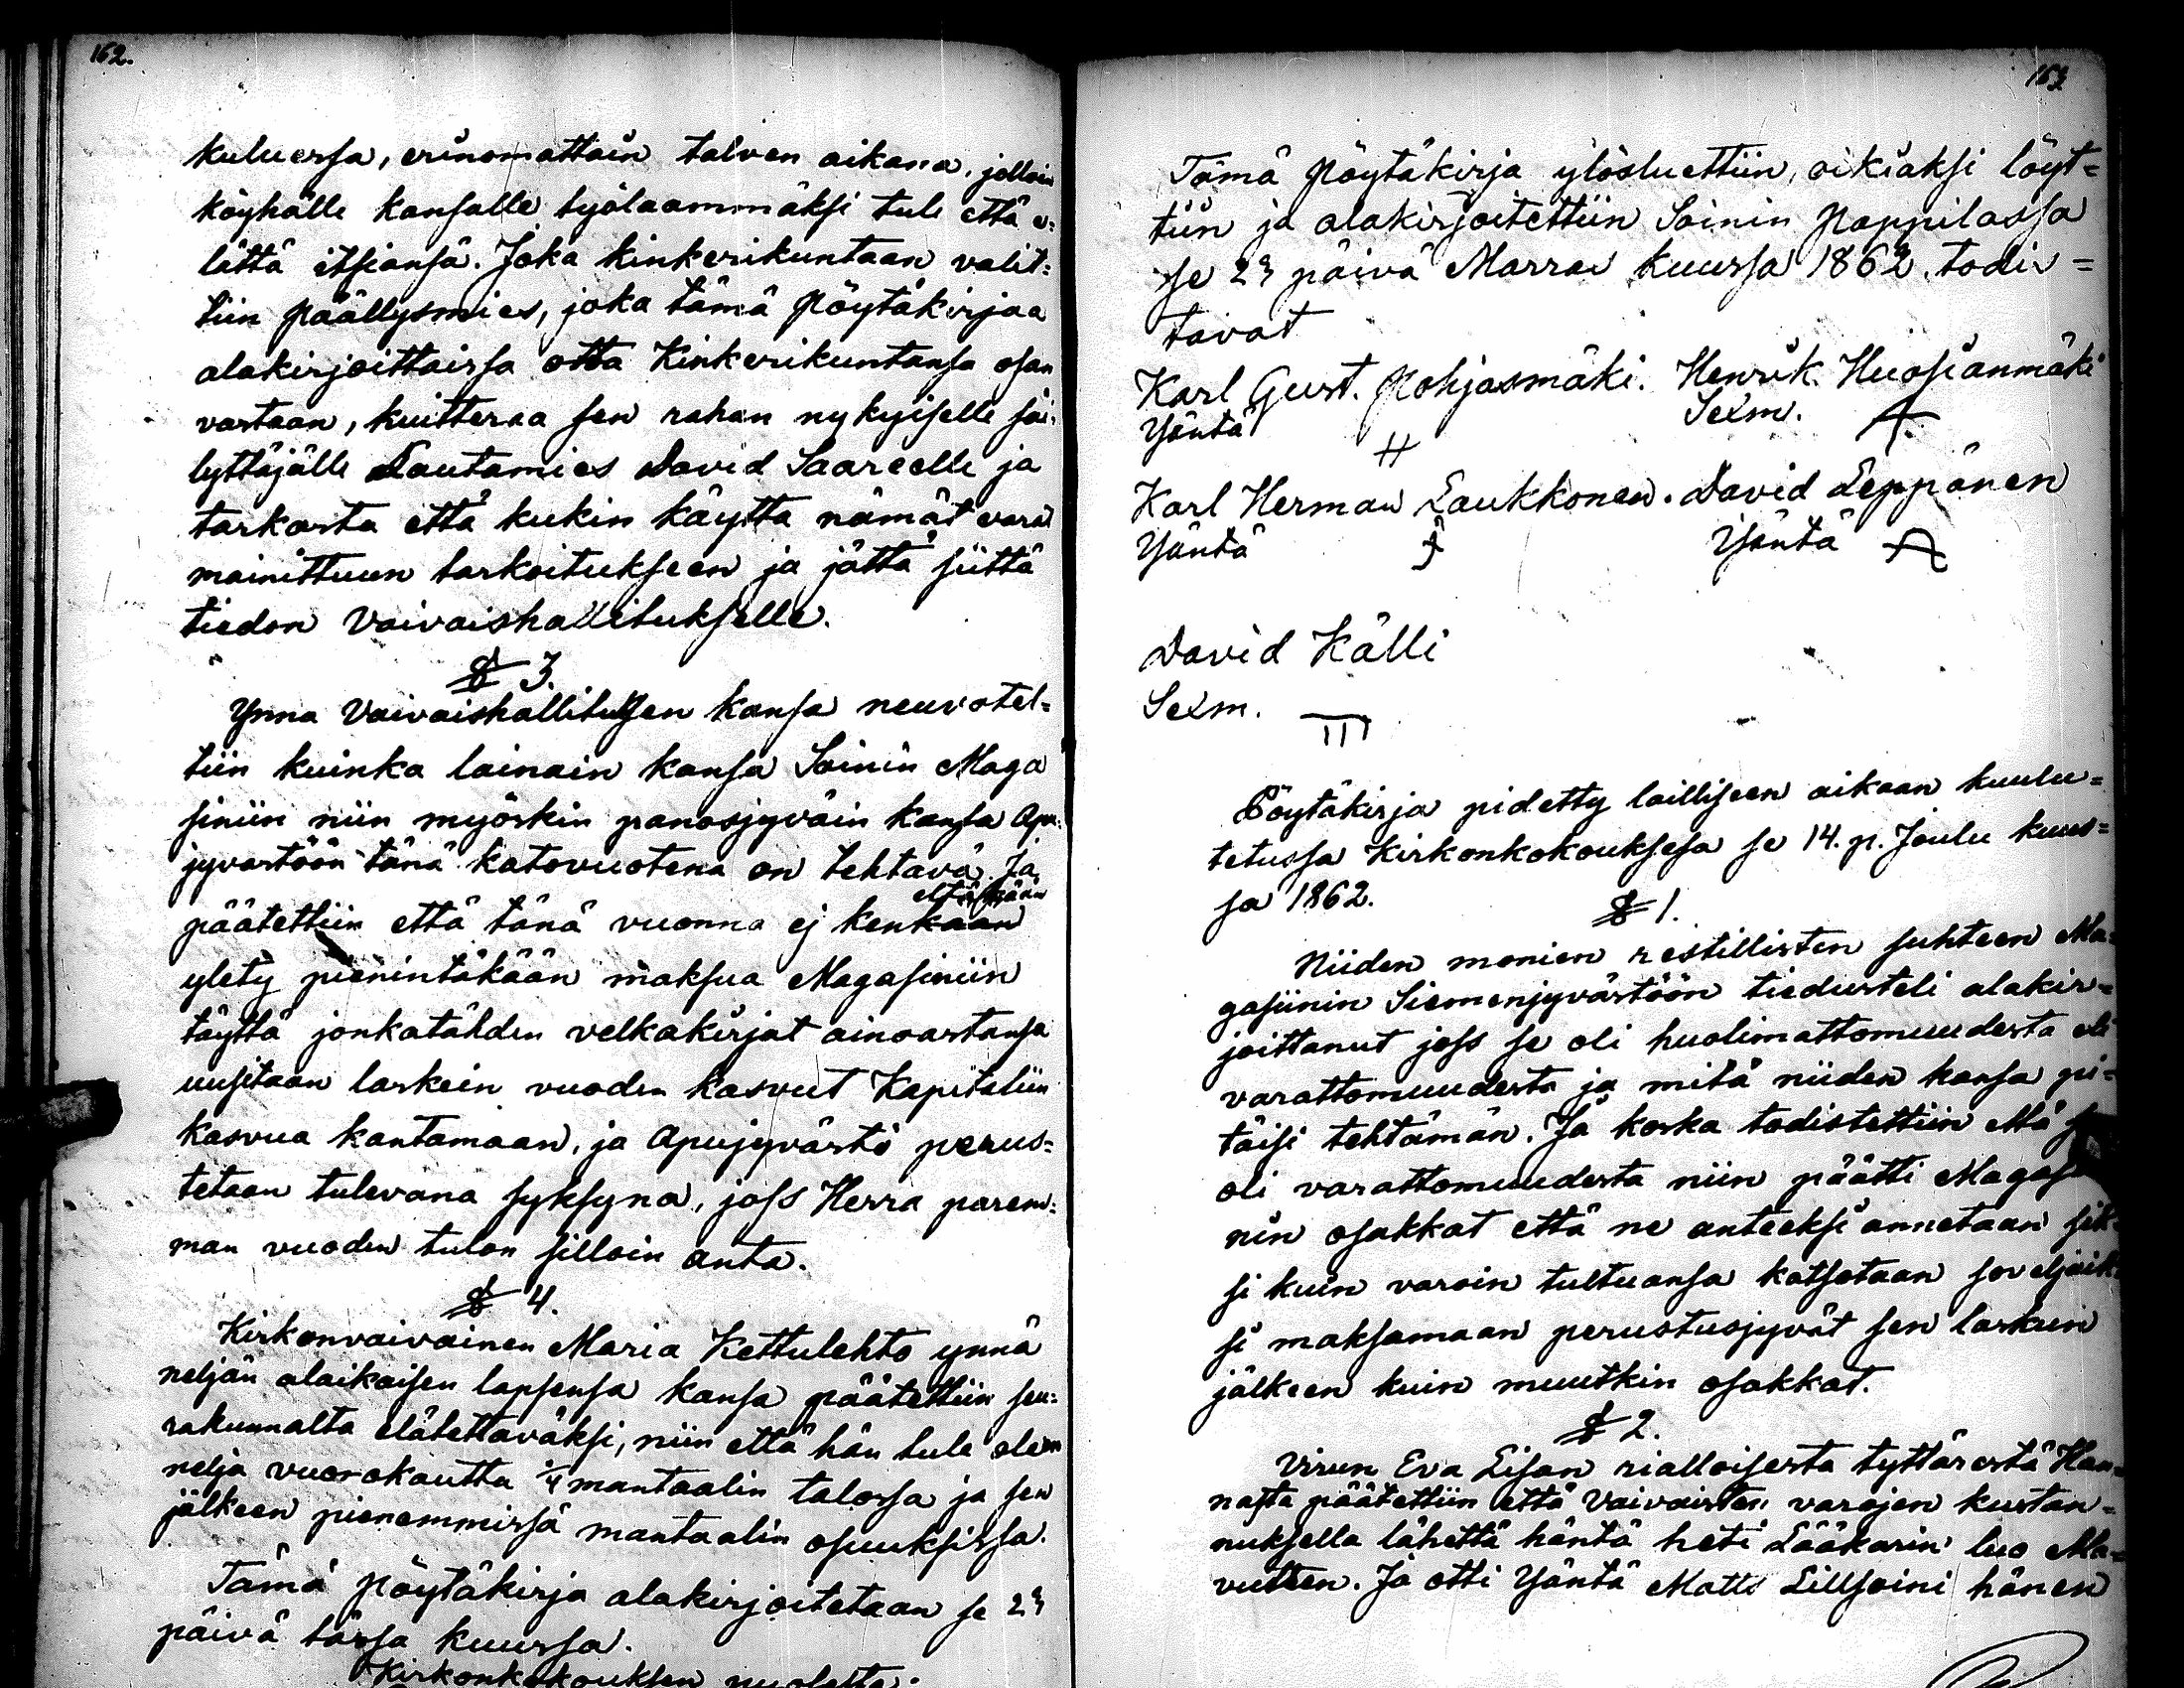 162.
kuluessa, erinomattain talven aikana, jolloin
köyhälle kansalle työlaammäksi tule että e-
lättä itsiansä. Joka kinkerikuntaan valit-
tiin päällysmies, joka tämä pöytäkirjaa
alakirjoittaissa otta Kinkerikuntansa osan
vastaan, kuitteraa sen rahan nykyiselle säi-
lyttäjälle Lautamies David Saareelle ja
tarkasta että kukin käyttä nämät varat
mainittuun tarkoitukseen ja jättä siittä
tiedon Vaivaishallitukselle.
§ 3.
Ynna Vaivaishallituksen kansa neuvotel-
tiin kuinka lainain kansa Soinin Maga
siniin niin myöskin panosjyväin kansa Apu-
jyvästöön tänä katovuotena on tehtävä. Ja
päätettiin että tänä vuonna ej kenkään
ylety pienintäkään maksua Magasiniin
täyttä jonkatähden velkakirjat ainoastansa
uusitaan laskein vuoden kasvut Kapitaliin
kasvua kantamaan, ja Apujyvästö perus-
tetaan tulevana syksynä, joss Herra parem-
man vuoden tulon silloin anta.
§ 4.
Kirkonvaivainen Maria Kettulehto ynnä
neljän alaikaisen lapsensa kansa päätettiin seu-
rakunnalta elätettäväksi, niin että hän tule olem
nelja vuorokautta 1/4 mantaalin talossa ja sen
jälkeen pienemmissä mantaalin osuuksissa.
Tämä pöytäkirja alakirjoitetaan se 23
päivä tässä kuussa.
Kirkonkokouksen puolesta:
163
Tämä pöytäkirja ylösluettiin, oikiaksi löyt-
tiin ja alakirjoitettiin Soinin Pappilassa
se 23 päivä Marras kuussa 1862. todis-
tavat
Karl Gust. Pohjasmäki. Henrik Huosianmäki
Yäntä Sexm.
Karl Herman Laukkonen. David Leppänen
Yäntä Yäntä
David Källi
Sexm.
Pöytäkirja pidetty lailliseen aikaan kuulu-
tetussa Kirkonkokouksesa se 14. p. Joulu kuus-
sa 1862.
§ 1.
Niiden monien restillisten suhteen Ma-
gasiinin Siemenjyvästöön tiedusteli alakir-
joittanut joss se oli huolimattomuudesta eli
varattomuudesta ja mitä niiden kansa pi-
täisi tehtämän. Ja koska todistettiin että
oli varattomuudesta niin päätti Magasi
nin osakkat että ne anteeksi annetaan sik-
si kuin varoin tultuansa katsotaan soveljaik
si maksamaan perustusjyvät sen laskun
jälkeen kuin muutkin osakkat.
§ 2.
Virun Eva Lisan rialloisesta tyttärestä Han-
nasta päätettiin että Vaivaisten varojen kustan-
nuksella lähettä häntä heti Lääkarin luo Ala-
vutteen. Ja otti Yäntä Matts Lillsoini hänen